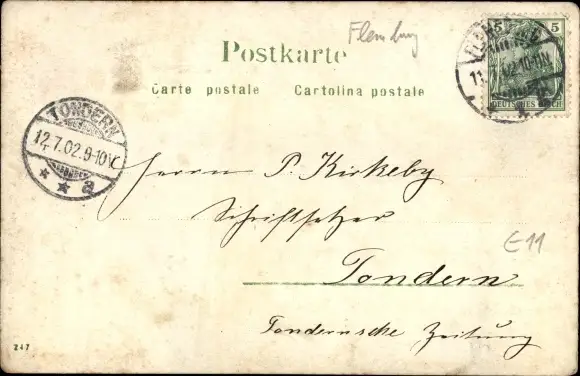 Flensburg
Postkarte
Carte postale Cartolina postale
5
DEUTSCHES REICH
TONDERN
12.7.02.9-10V.
Herrn P. Kirkeby
Schriftsetzer
Tondern
Tondernsche Zeitung
E11
247